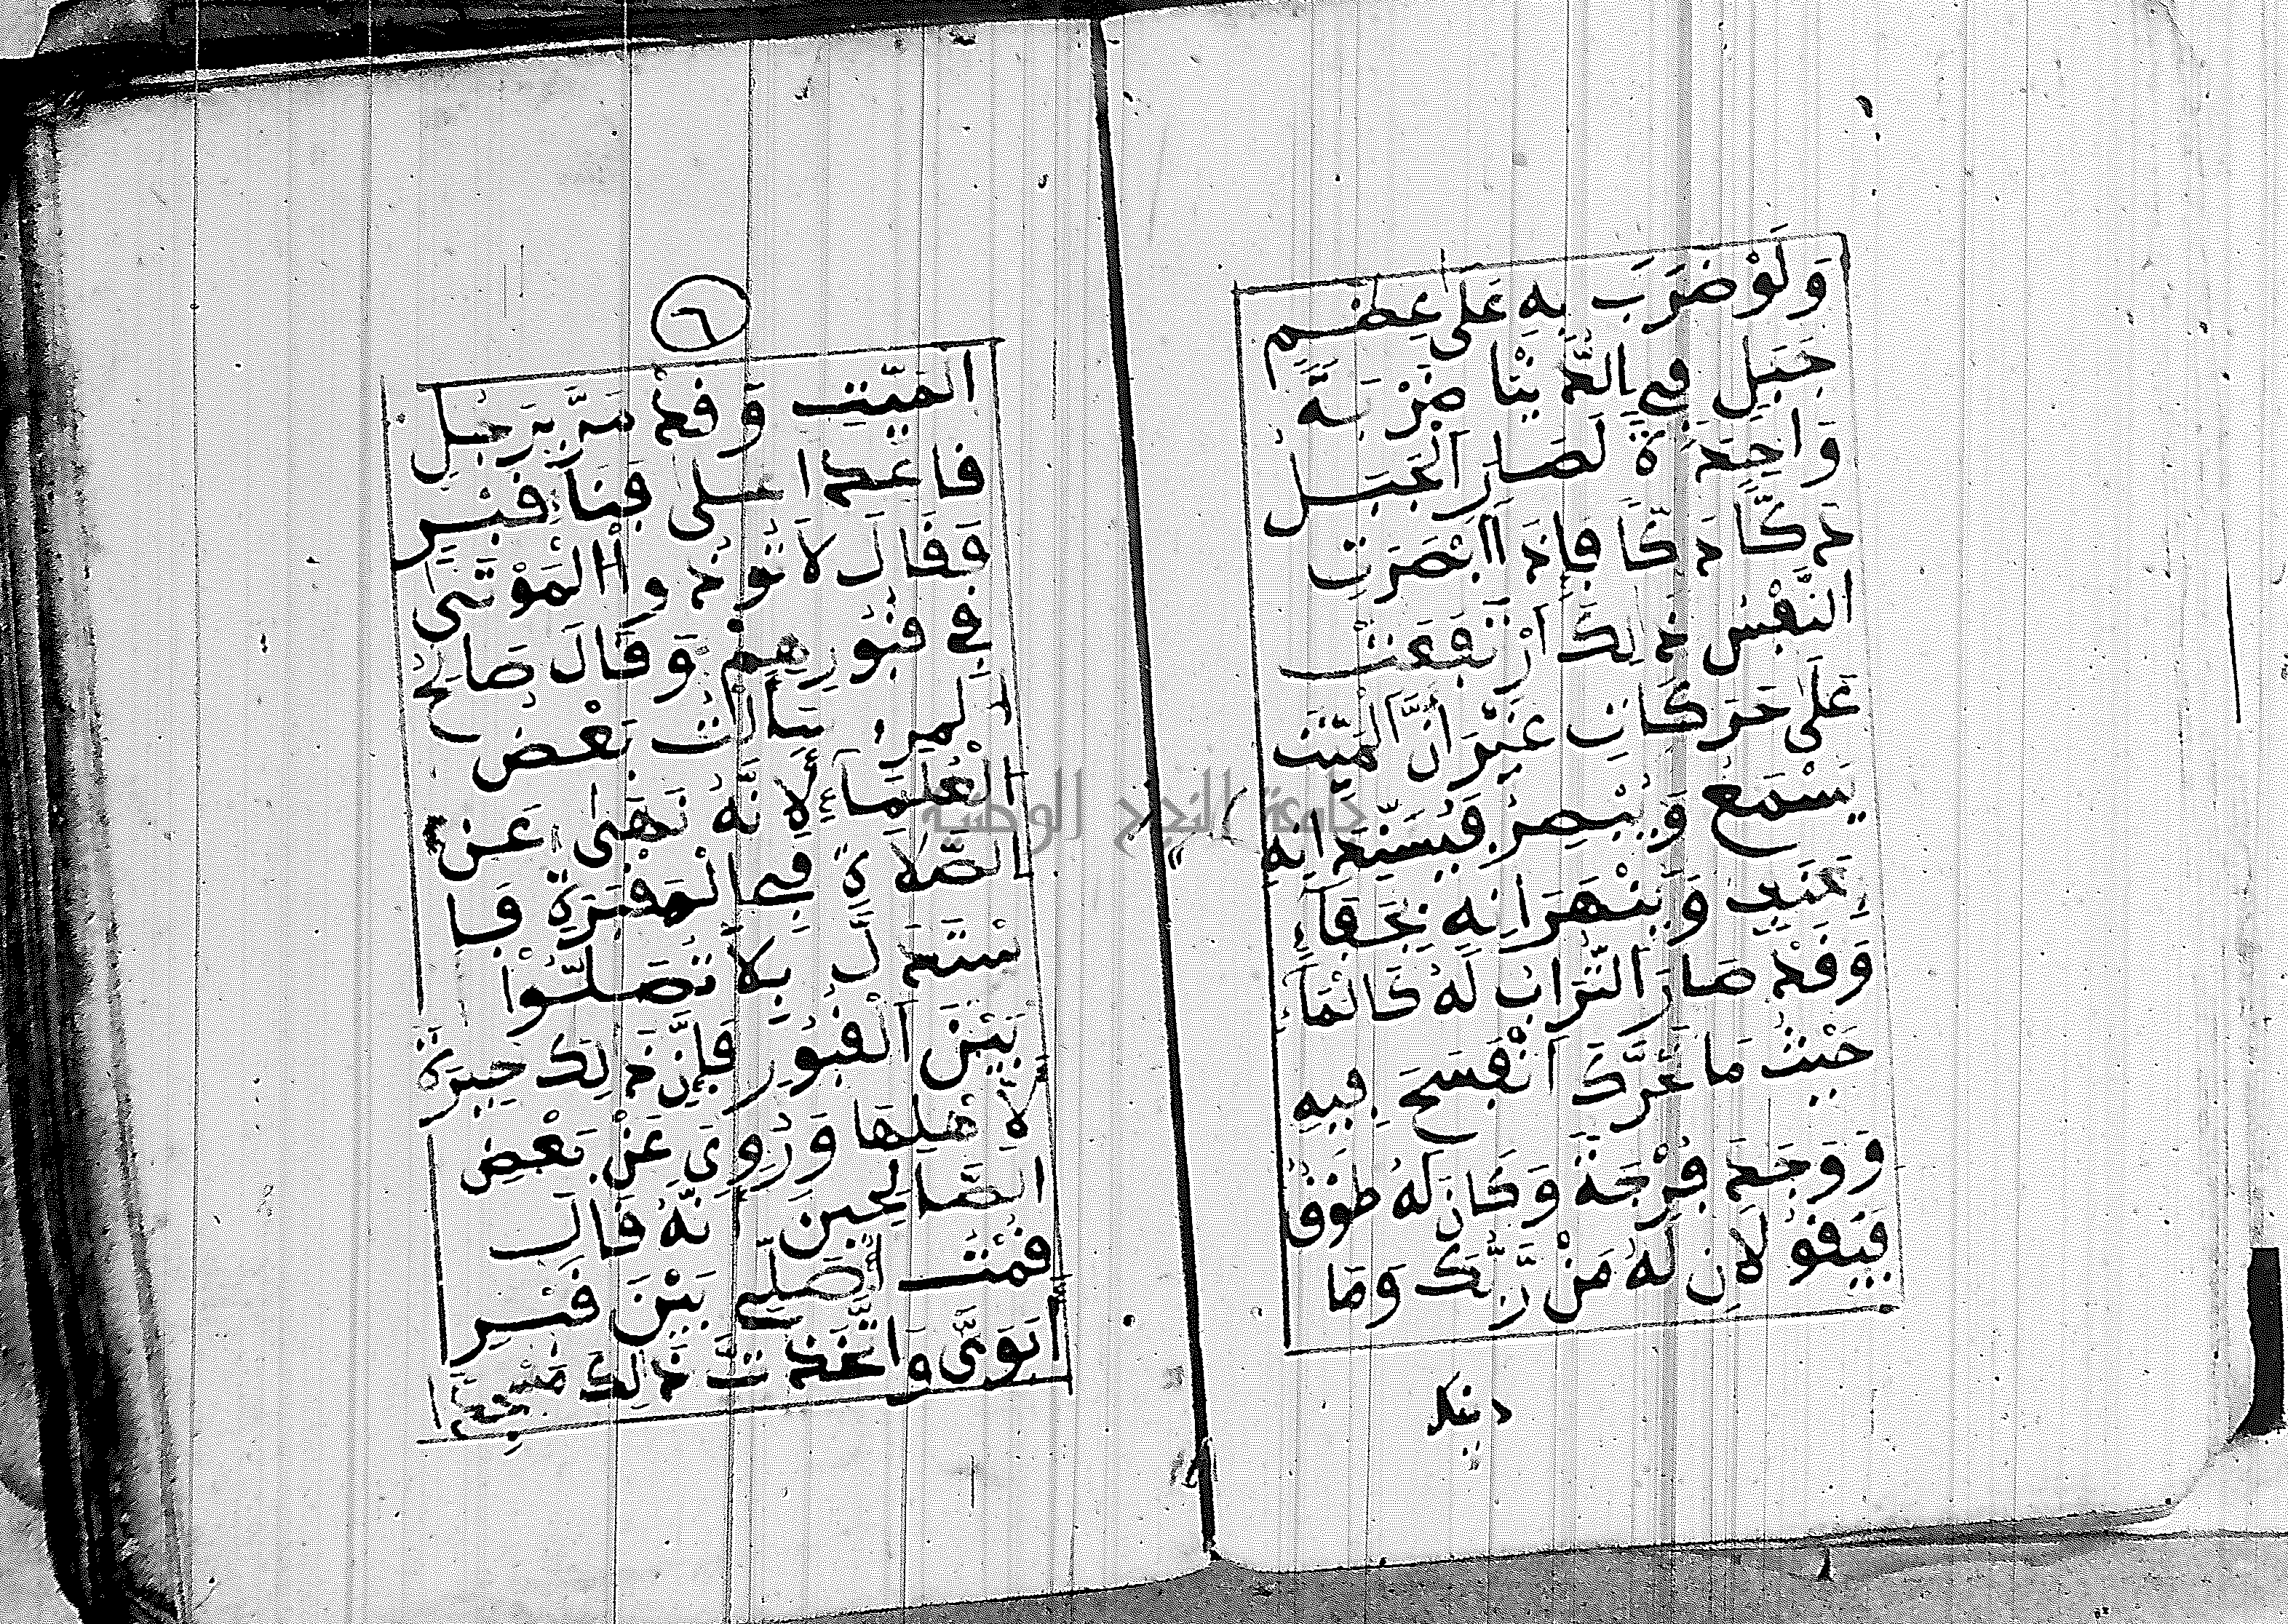 وَلَوْ ضَرَبَ بِهِ عَلَى عِضَمِ
جَبَلٍ فِي الدُّنْيَا ضَرْبَةً
وَاحِدَةً لَصَارَ الْجَبَلُ
دَكّاً دَكّاً فَإِذَا ابْصَرَتِ
النَّفْسُ ذَلِكَ ارْتَفَعَتْ
عَلَى حَرَكَاتِ غَيْرَ انَّ الْمَيِّتَ
يَسْمَعُ وَيُبْصِرُ فَيُسَنِّدَانِهِ
بِعُنْفٍ وَيَنْهَرَانِهِ بِجَفَاءٍ
وَقَدْ صَارَ التُّرَابُ لَهُ كَالْمَاءِ
حَيْثُ مَا تَحَرَّكَ انْفَسَحَ فِيهِ
وَوَجَدَ فُرْجَةً وَكَانَ لَهُ طَوْقٌ
فَيَقُولَانِ لَهُ مَنْ رَّبُّكَ وَمَا
دينك
٦
الْمَيِّتِ وَقَدْ مَرَّ بِرَجُلٍ
قاعدا على فنا قَبْرٍ
فَقَالَ لَا تُوذُوا الْمَوْتَى
فِي قُبُورِهِمْ وَقَالَ صَالِحُ
المري سَأَلْتُ بَعْضَ
الْعُلَمَاءِ لِأَنَّهُ نَهَى عَنِ
الصَّلَاةِ فِي الْمَقْبَرَةِ فَا
سْتَدَلَّ بِلَا تُصَلُّوا
بَيْنَ الْقُبُورِ فَإِنَّ ذَلِكَ حَيْرَةٌ
لَأَهْلِهَا وَرُوِيَ عَنْ بَعْضِ
الصَّالِحِينَ أَنَّهُ قَالَ
قُمْتُ أُصَلِّي بَيْنَ قَبْرِ
ابَوَيَّ وَاتَّخَذْتُ ذَلِكَ مَسْجِداً
جامعة النجاح الوطنية